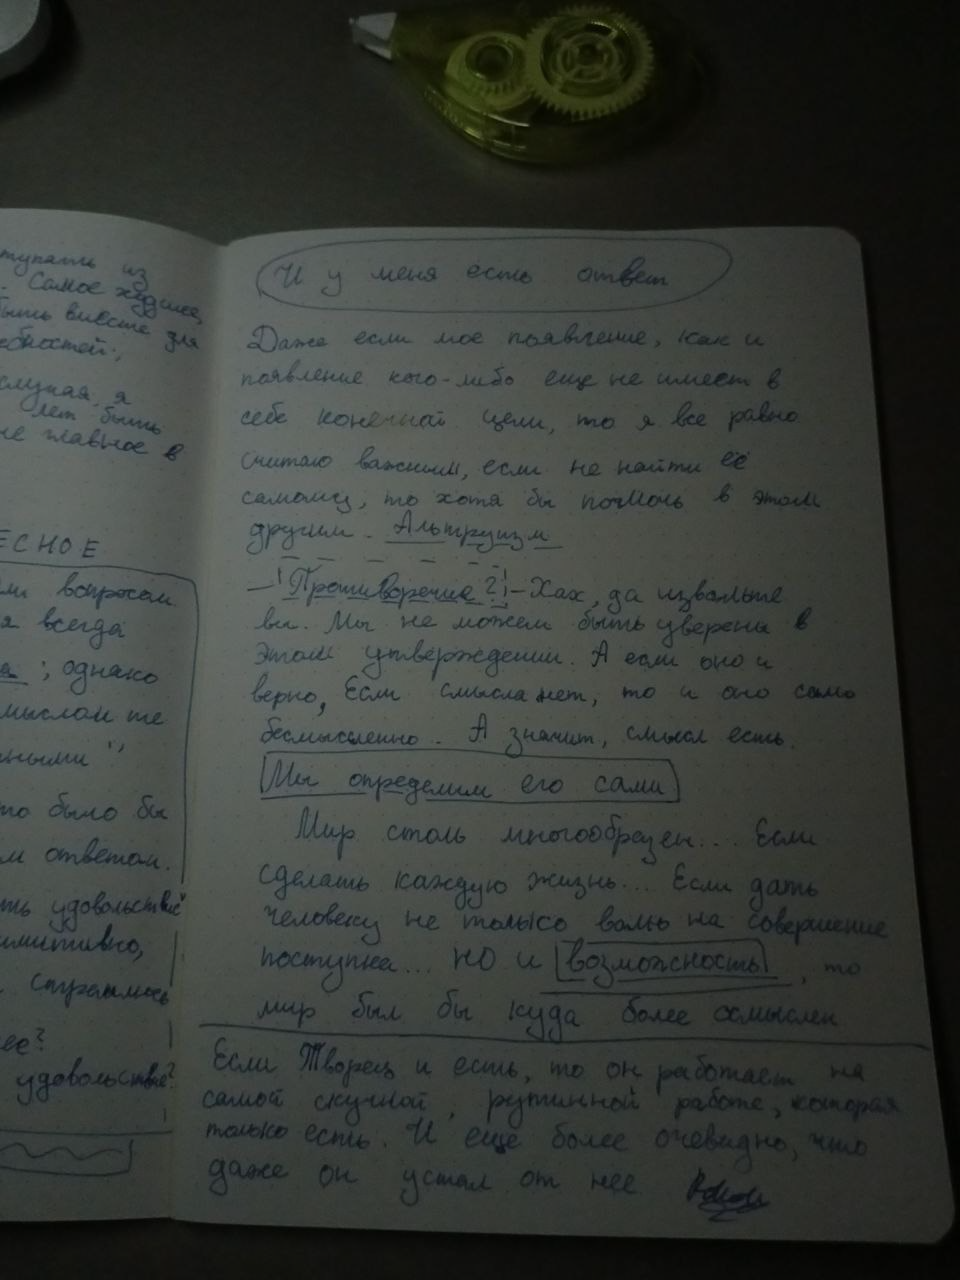 ступать из
. Самое худшее,
быть вместе для
ебностей;
случая, я
лет быть
не главное в
ЕСНОЕ
ми вопросом
я всегда
а; однако
мыслом те
ными";
то было бы
м ответом.
ть удовольствие"
имитивно,
. стремлюсь
ее?
удовольствие?
И у меня есть ответ
Даже если мое появление, как и
появление кого-либо еще не имеет в
себе конечной цели, то я все равно
считаю важным, если не найти её
самому, то хотя бы помочь в этом
другим. Альтруизм
— Противоречие? – Хах, да извольте
вы. Мы не можем быть уверены в
этом утверждении. А если оно и
верно, Если смысла нет, то и оно само
бесмысленно. А значит, смысл есть.
Мы определим его сами
Мир столь многообразен... Если
сделать каждую жизнь... Если дать
человеку не только волю на совершение
поступка... но и возможность, то
мир был бы куда более осмыслен
Если Творец и есть, то он работает на
самой скучной, рутинной работе, которая
только есть. И еще более очевидно, что
даже он устал от нее